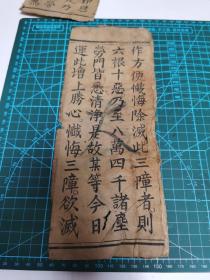 作方便懺悔除滅此三障者則
六根十惡乃至八萬四千諸塵
勞門皆悉清淨是故某等今日
運此增上勝心懺悔三障欲滅